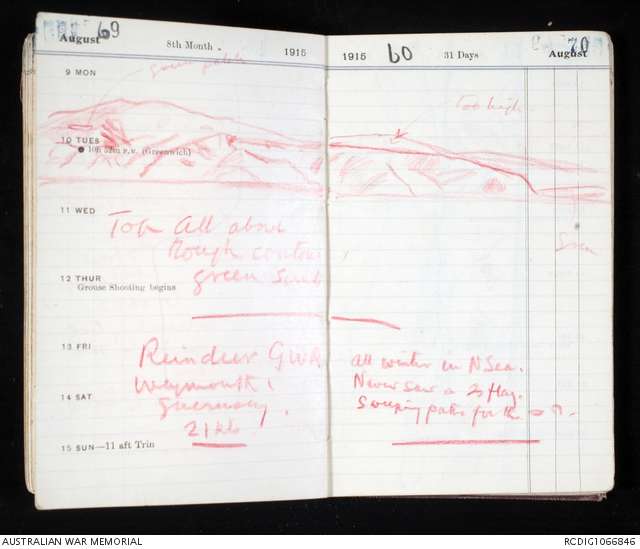 69
August 8th Month 1915
9 MON
green patch
10 TUES
10h 52m P.M. (Greenwich)
11 WED
Top All about
Rough contour
green Scrub
12 THUR
Grouse Shooting begins
13 FRI
Reindeer GWR
Weymouth &
Guernsey.
14 SAT
21 kts
15 SUN—11 aft Trin
1915 60 31 Days August 70
Too high
Green
all winter in N Sea.
Never saw a flag.
Sweeping paths for the
AUSTRALIAN WAR MEMORIAL
RCDIG1066846